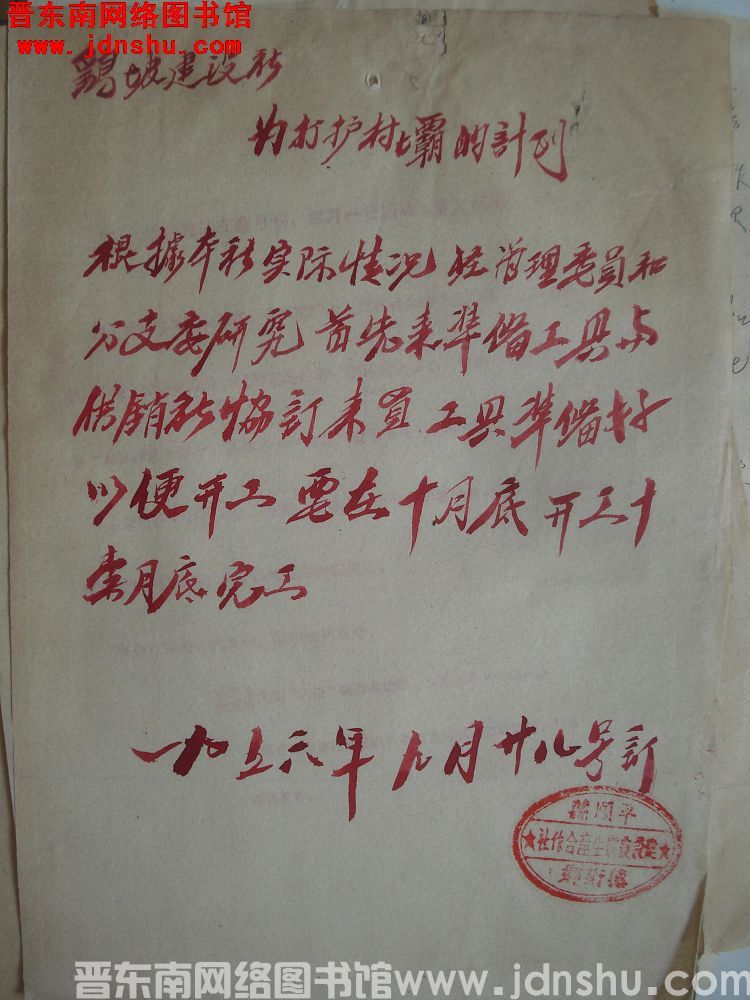 晋东南网络图书馆
www.jdnshu.com
坡建设社
为打护村坝的計划
根據本社实际情况 经管理委員和
分支委研究 首先来準備工具与
供銷社協訂来買 工具準備好
以便开工 要在十月底开工十
壹月底完工
一九五六年九月廿八号訂
平順縣
農業生産合作社
鄉
晋东南网络图书馆www.jdnshu.com